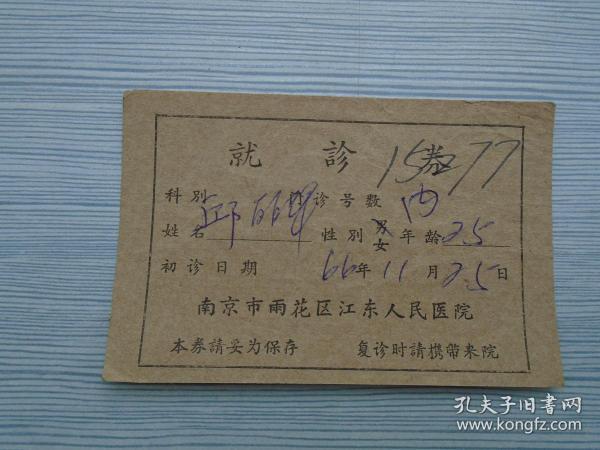 就 診 券 15277
科別 門诊号数 内
姓名 邱 性别 男女 年龄 25
初诊日期 66年11月25日
南京市雨花区江东人民医院
本券請妥为保存 复诊时請携帶来院
孔夫子旧书网
www.kongfz.com